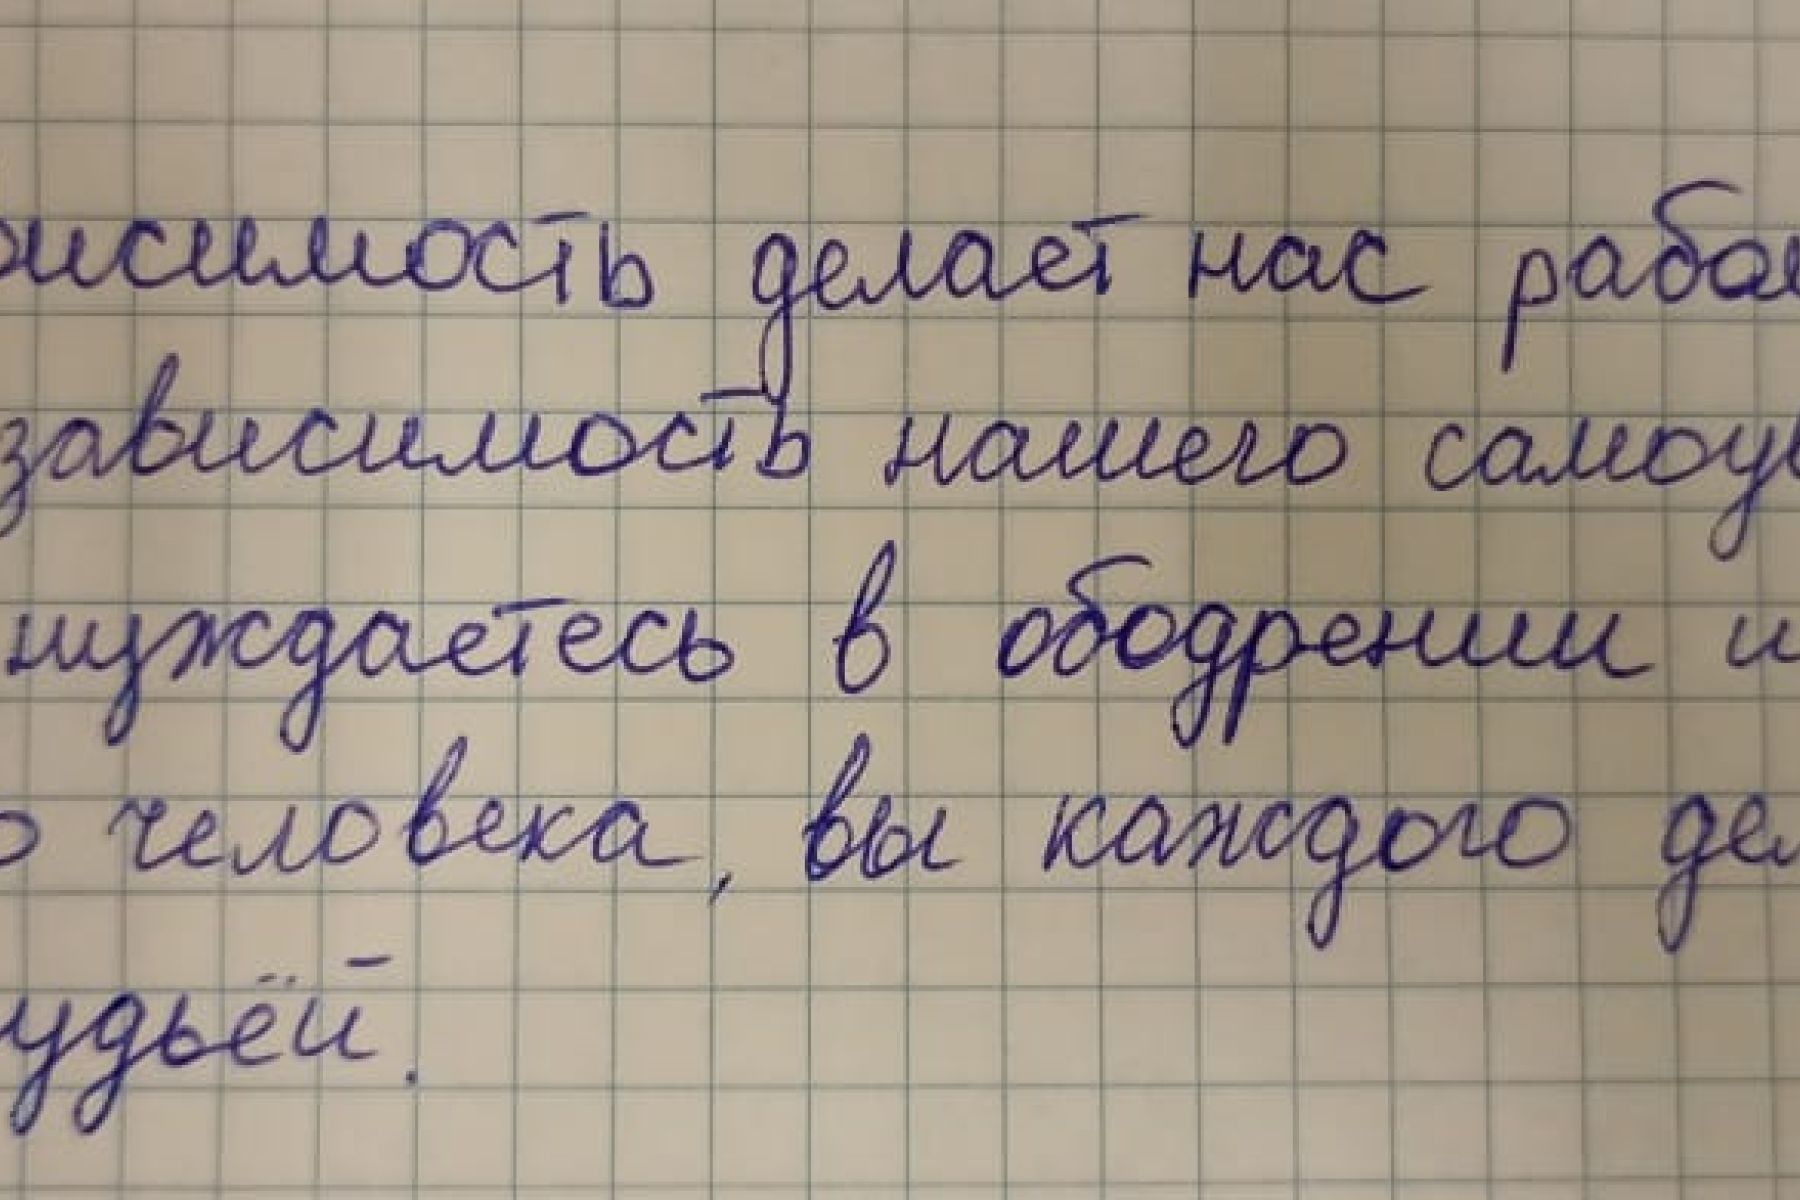 висимость делает нас раба
зависимость нашего самоув
нуждаетесь в ободрении и
о человека, вы каждого де
удьёй.